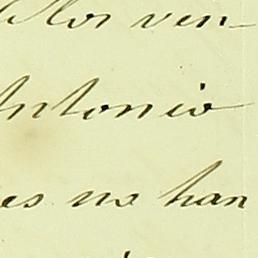 los ven-
Antonio
es no han